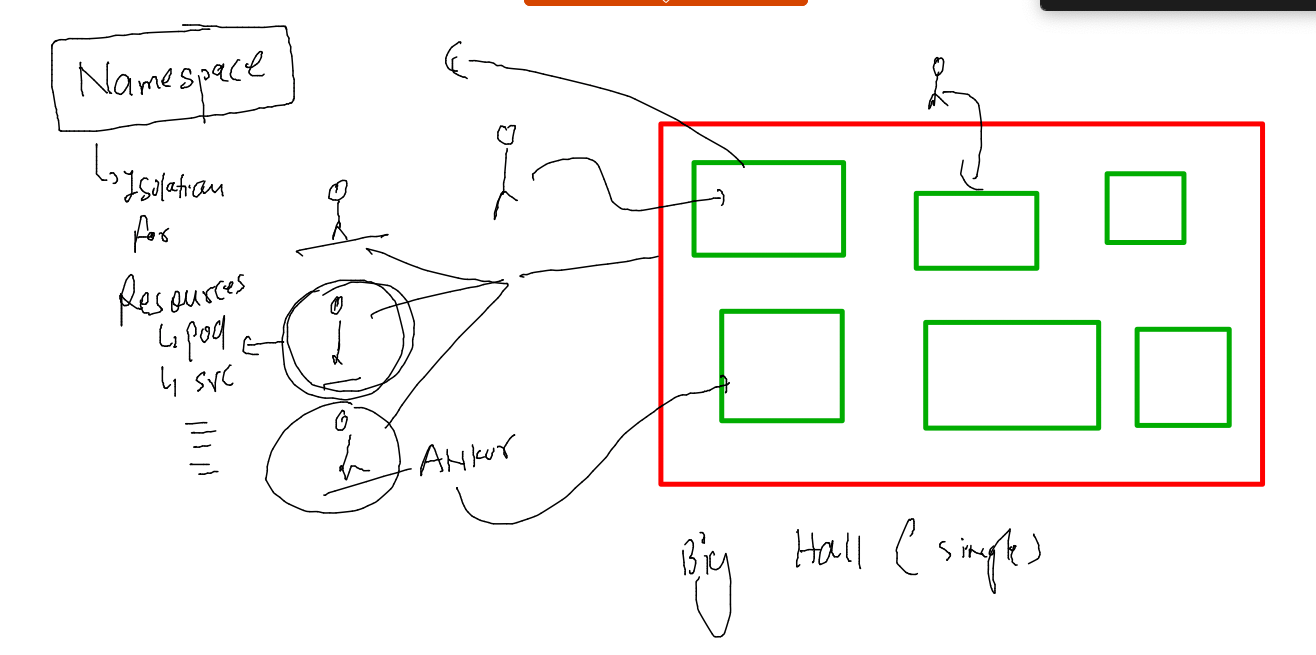 Namespace
Isolation
for
Resources
pod
svc
Ankur
Big Hall (single)